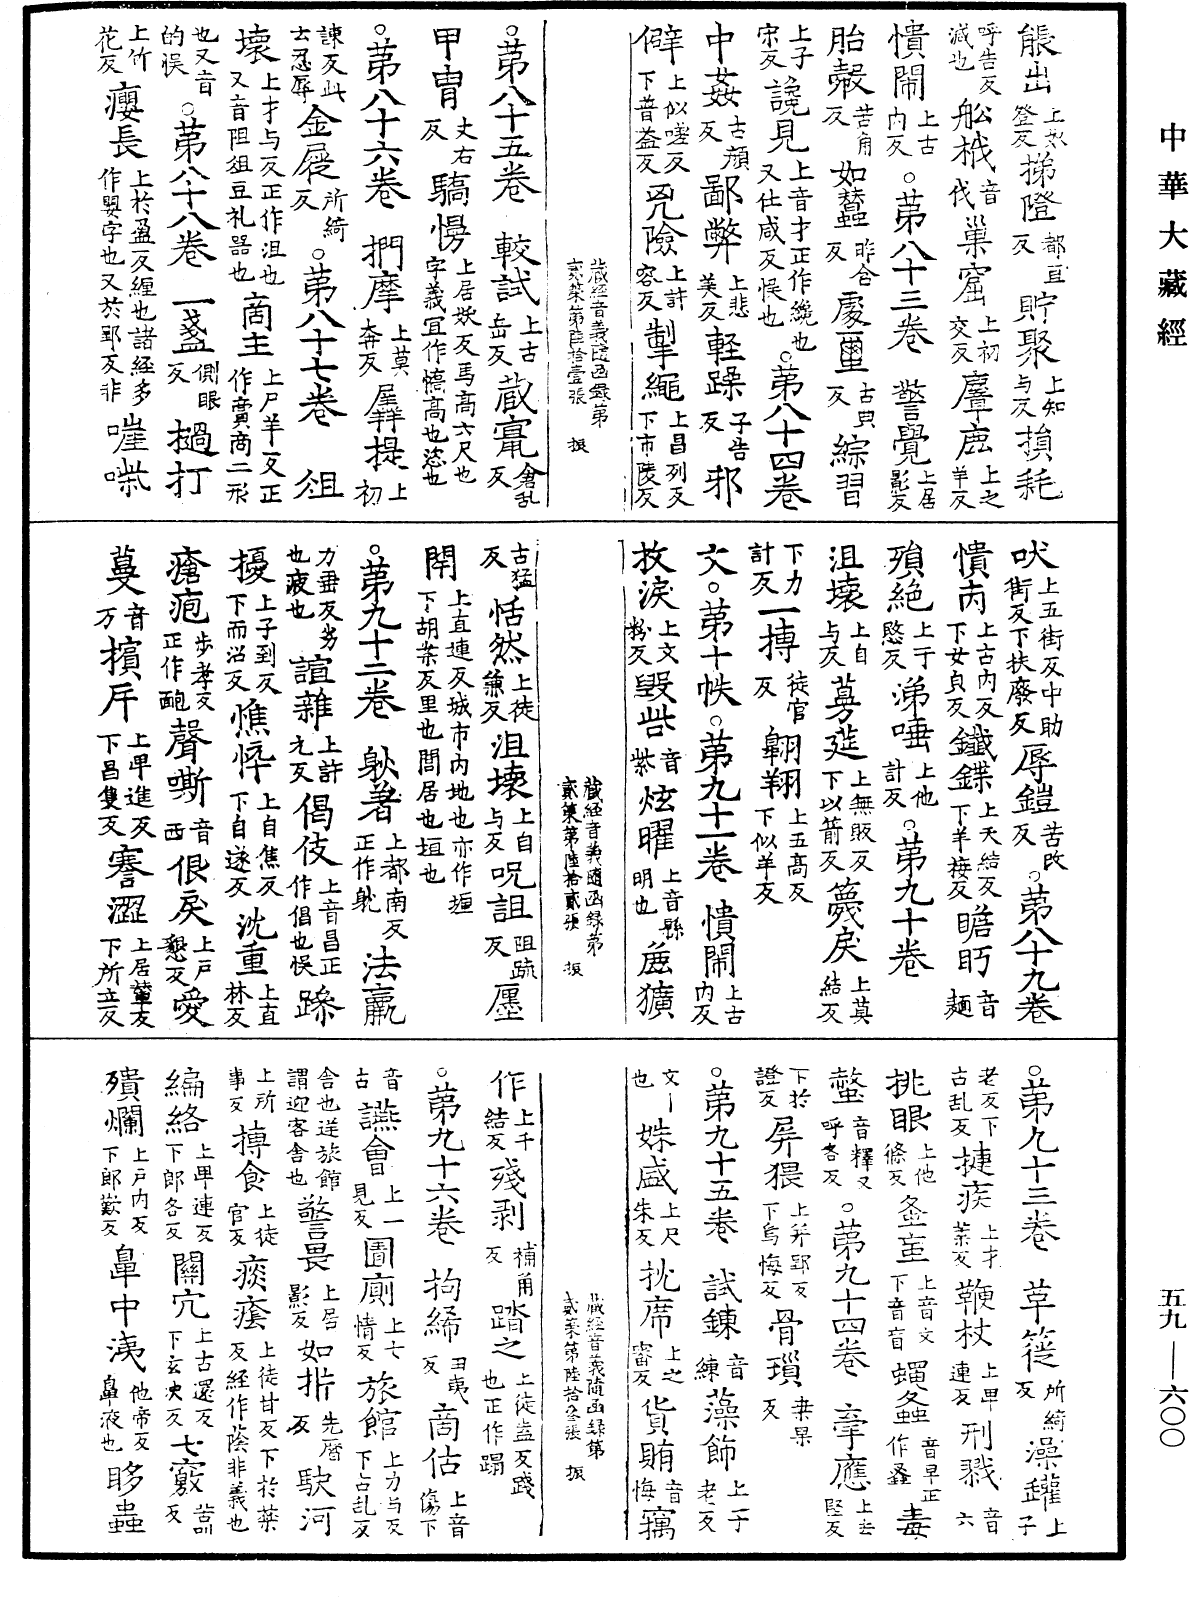 中華大藏經
五九—六〇〇
能出上奴登反㨑隥都亘反貯聚上知与反損耗
呼告反減也舩栰音伐巢窟上初交反麞鹿上之羊反
憒閙上古内反○第八十三卷 警覺上居影反
胎㲉苦角反如蠶昨含反㕓畺古典反綜習
上子宋反讒見上音才正作纔也又仕咸反悮也○第八十四卷
中姦古顔反鄙弊上悲美反軽躁子告反邪
僻上似嗟反下普益反兇險上許容反掣繩上昌列反下市陵反
藏經音義随函録第貳第陸拾壹張 振
○第八十五卷 較試上古岳反蔵竄倉乱反
甲冑丈右反驕慢上居妖反馬高六尺也字義冝作憍高也恣也
○第八十六卷 捫摩上莫奔反羼提上初
諫反此云忍辱金屣所綺反○第八十七卷 爼
壞上才与反正作沮也又音阻爼豆礼器也啇主上尸羊反正作賣商二形
也又音的悮○第八十八卷 一盞側眼反撾打
上竹花反癭長上於盈反纏也諸經多作嬰字也又於郢反非㗒㗭
吠上五街反中助街反下扶廢反辱鎧苦改反○第八十九卷
憒丙上古内反下女皃反鐵鍱上天結反下羊接反瞻眄音麺
殞絶上于愍反涕唾上他計反○第九十卷
沮壞上自与反蔓莚上無販反下以箭反篾戾上莫結反
下力計反一摶徒官反翺翔上五高反下似羊反
文○第十帙○第九十一卷 憒閙上古内反
抆淚上文粉反毀呰音紫炫曜上音縣明也麁獷
藏經音義随函録第貳第陸拾貳張 振
古猛反恬然上徒兼反沮壞上自与反呪詛阻疏反㕓
閈上直連反城市内地也亦作㕓下胡案反里也閭居也垣也
○第九十二卷 躭著上都南反正作躭法羸
力垂反劣也疲也諠雜上許元反倡伎上音昌正作倡也悮㠁
擾上子到反下而沼反憔悴上自焦反下自遂反沈重上直林反
瘡疱步孝反正作皰聲嘶音西佷戾上戸懇反愛
蔓音万擯斥上卑進反下昌隻反謇澀上居輦反下所立反
○第九十三卷 草蓰所綺反澡罐上子
老反下古乱反揵疾上才葉反鞭杖上卑連反刑戮音六
挑眼上他條反蚉䖟上音文下音盲蠅蚤音早正作蚤毒
螫音釋又呼各反○第九十四卷 牽應上去堅反
下於證反屏猥上并郢反下烏悔反骨瑣桒果反
○第九十五卷 試錬音練藻飾上子老反
文丨也姝盛上尺朱反抌席上之審反貨賄音悔寓
藏經音義随函録第貳第陸拾叁張 振
作上千結反殘剥補角反踏之上徒盍反踐也正作蹋
○第九十六卷 拘絺丑夷反啇估上音傷下
音古讌會上一見反圊廁上七情反旅館上力与反下古乱反
舍也送旅館謂迎客舍也警畏上居影反如㭊先曆反駃河
上所事反摶食上徒官反痰癊上徒甘反下於禁反經作蔭非義也
編絡上卑連反下郎各反關穴上古還反下玄决反七竅苦吊反
殨爛上戸内反下郎歎反鼻中洟他帝反鼻液也眵蟲